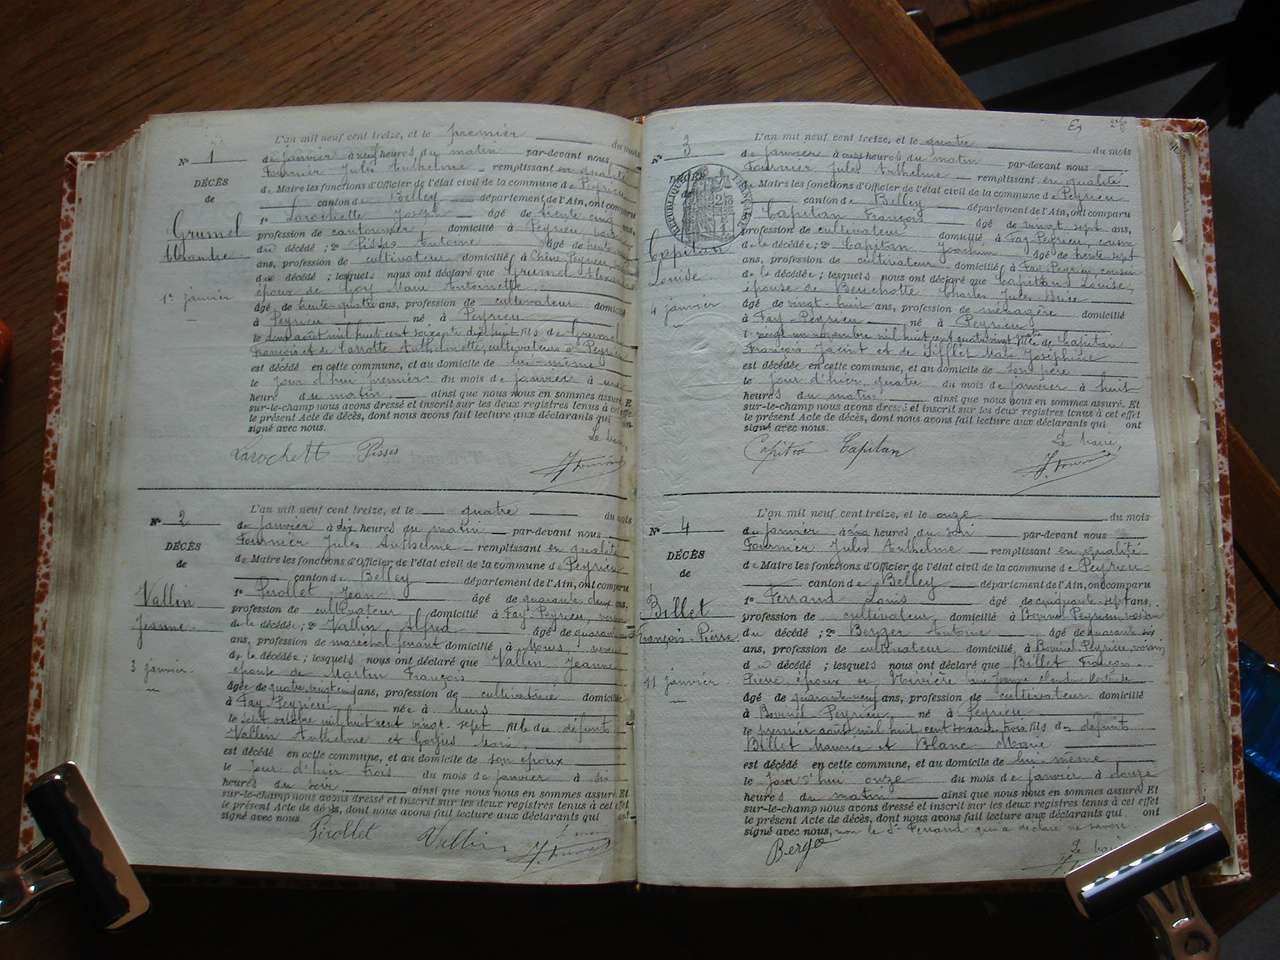 L'an mil neuf cent treize, et le premier du mois
N° 1
de janvier à neuf heures du matin par-devant nous
DÉCÈS
Fournier Jules Anthelme remplissant en qualité
de
de Maire les fonctions d'Officier de l'état civil de la commune de Peyrieu
canton de Belley département de l'Ain, ont comparu
Grumel
1° Larochette Joseph âgé de trente cinq ans,
profession de cantonnier domicilié à Peyrieu,
du décédé ; 2° Pisses Antoine âgé de trente
ans, profession de cultivateur domicilié à
du décédé ; lesquels nous ont déclaré que Grumel
1er janvier
époux de Goy Marie Antoinette
âgé de trente quatre ans, profession de cultivateur domicilié
à Peyrieu né à Peyrieu
le deux août mil huit cent soixante dix huit fils de Grumel
François et de Anthelmette, cultivateurs à Peyrieu
est décédé en cette commune, et au domicile de lui-même
le jour d'hui premier du mois de janvier à une
heure du matin ainsi que nous nous en sommes assuré. Et
sur-le-champ nous avons dressé et inscrit sur les deux registres tenus à cet effet
le présent Acte de décès, dont nous avons fait lecture aux déclarants qui ont
signé avec nous.
Le maire,
Larochett Pisses J. Fournier
L'an mil neuf cent treize, et le quatre du mois
N° 2
de janvier à dix heures du matin par-devant nous
DÉCÈS
Fournier Jules Anthelme remplissant en qualité
de
de Maire les fonctions d'Officier de l'état civil de la commune de Peyrieu
canton de Belley département de l'Ain, ont comparu
Vallin
1° Pirollet Jean âgé de quarante deux ans,
profession de cultivateur domicilié à Fay-Peyrieu,
Jeanne
de la décédée ; 2° Vallin Alfred âgé de quarante
ans, profession de maréchal ferrant domicilié à
3 janvier
de la décédée ; lesquels nous ont déclaré que Vallin Jeanne
épouse de Martin François
âgée de quatre vingt cinq ans, profession de cultivatrice domiciliée
à Fay Peyrieu née à
le sept octobre mil huit cent vingt sept fille des défunts
Vallin Anthelme et
est décédé en cette commune, et au domicile de son époux
le jour d'hier trois du mois de janvier à six
heures du soir ainsi que nous nous en sommes assuré. Et
sur-le-champ nous avons dressé et inscrit sur les deux registres tenus à cet effet
le présent Acte de décès, dont nous avons fait lecture aux déclarants qui ont
signé avec nous.
Pirollet Vallin J. Fournier
L'an mil neuf cent treize, et le quatre du mois
N° 3
de janvier à heures du matin par-devant nous
DÉCÈS
Fournier Jules Anthelme remplissant en qualité
de
de Maire les fonctions d'Officier de l'état civil de la commune de Peyrieu
canton de Belley département de l'Ain, ont comparu
1° Capitan François âgé de vingt sept ans,
profession de cultivateur domicilié à Fay Peyrieu, cousin
Capitan
de la décédée ; 2° Capitan Joachim âgé de trente sept
Louise
ans, profession de cultivateur domicilié à Fay Peyrieu, cousin
de la décédée ; lesquels nous ont déclaré que Capitan Louise,
4 janvier
épouse de Charles Jules
âgé de vingt huit ans, profession de ménagère domicilié
à Fay Peyrieu né à Peyrieu
le vingt un novembre mil huit cent quatre vingt fille de Capitan
François et de Billet Joséphine
est décédé en cette commune, et au domicile de son père
le jour d'hier, quatre du mois de janvier à huit
heures du matin ainsi que nous nous en sommes assuré. Et
sur-le-champ nous avons dressé et inscrit sur les deux registres tenus à cet effet
le présent Acte de décès, dont nous avons fait lecture aux déclarants qui ont
signé avec nous.
Le maire,
Capitan Capitan J. Fournier
L'an mil neuf cent treize, et le onze du mois
N° 4
de janvier à heures du soir par-devant nous
DÉCÈS
Fournier Jules Anthelme remplissant en qualité
de
de Maire les fonctions d'Officier de l'état civil de la commune de Peyrieu
canton de Belley département de l'Ain, ont comparu
Billet
1° Ferrand Louis âgé de cinquante sept ans,
profession de cultivateur domicilié à Peyrieu, voisin
François-Pierre
du décédé ; 2° Berger Antoine âgé de quarante six
ans, profession de cultivateur domicilié à Peyrieu, voisin
du décédé ; lesquels nous ont déclaré que Billet François
11 janvier
Pierre époux de
âgé de quarante neuf ans, profession de cultivateur domicilié
à Peyrieu né à Peyrieu
le premier août mil huit cent soixante trois fils de défunts
Billet Maurice et Blanc Marie
est décédé en cette commune, et au domicile de lui même
le jour d'hui onze du mois de janvier à douze
heures du matin ainsi que nous nous en sommes assuré. Et
sur-le-champ nous avons dressé et inscrit sur les deux registres tenus à cet effet
le présent Acte de décès, dont nous avons fait lecture aux déclarants qui ont
signé avec nous, non le Sr Ferrand qui a déclaré ne savoir.
Le maire
Berger